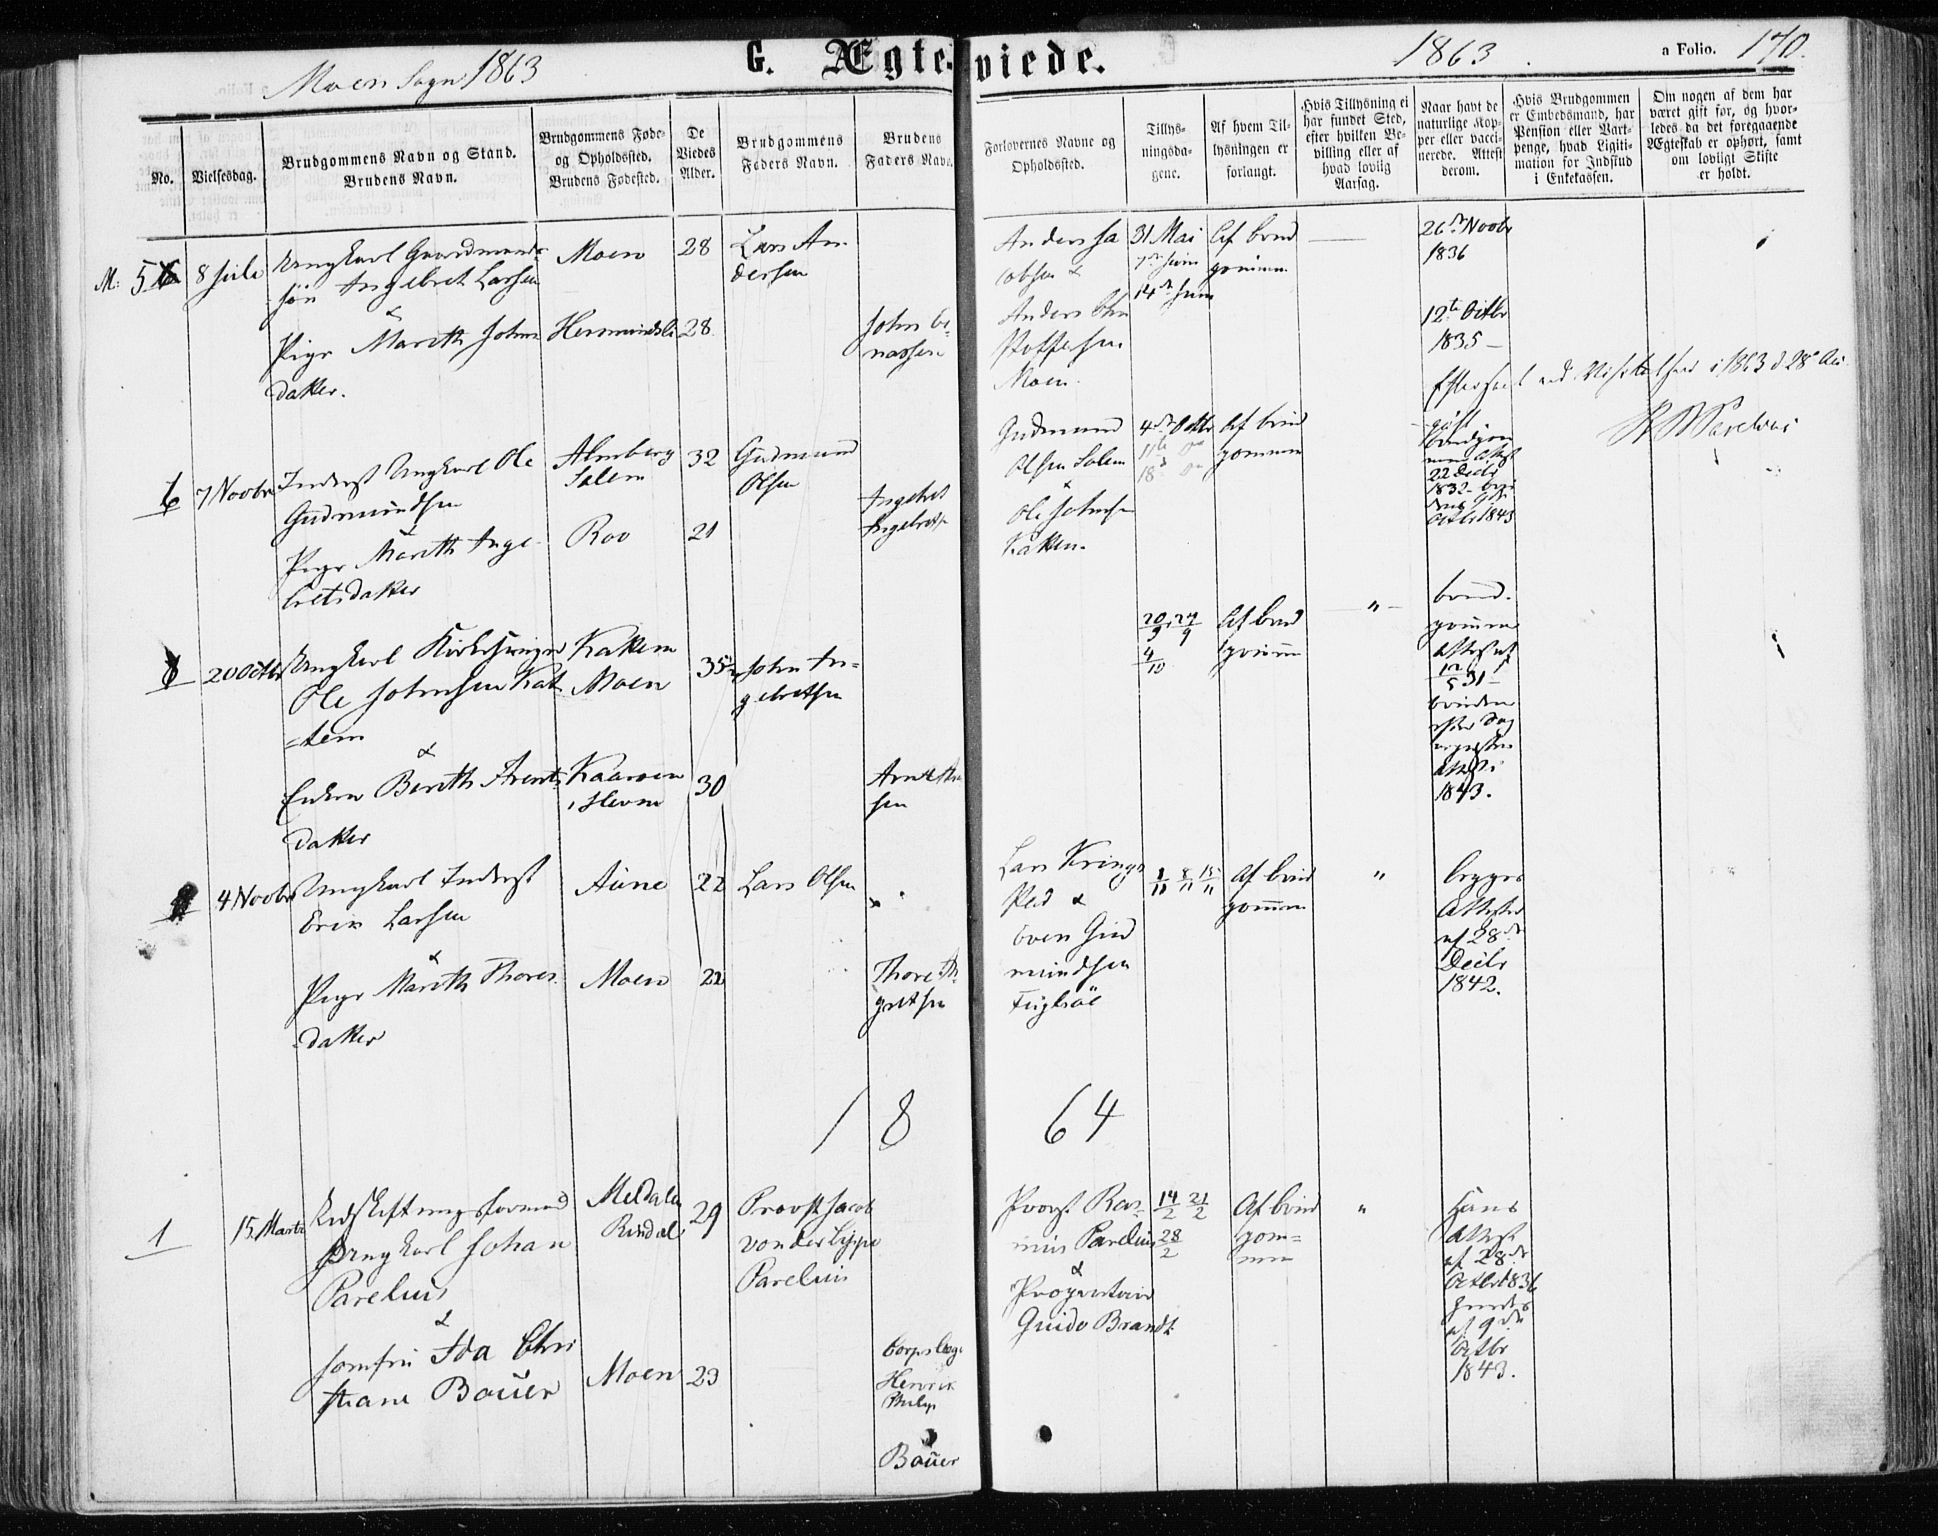 Moen Sogn 1863
G. Ægteviede.
1863
a Folio. 170.
No.
Vielsesdag.
Brudgommens Navn og Stand.
Brudens Navn.
Brudgommens Føde-
og Opholdssted.
Brudens Fødested.
De
Viedes
Alder.
Brudgommens
Faders Navn.
Brudens
Faders Navn.
Forlovernes Navne og
Opholdssted.
Tillys-
ningsda-
gene.
Af hvem Til-
lysningen er
forlangt.
Hvis Tillysning ei
har fundet Sted,
efter hvilken Be-
villing eller af
hvad lovlig
Aarsag.
Naar havt de
naturlige Kop-
per eller vacci-
nerede. Attest
derom.
Hvis Brudgommen
er Embedsmand, har
Pension eller Vart-
penge, hvad Ligiti-
mation for Indskud
i Enkekassen.
Om nogen af dem har
været gift før, og hvor-
ledes da det foregaaende
Ægteskab er ophørt, samt
om lovligt Skifte
er holdt.
M: 5
8 Juli
Ungkarl Gaardmands-
søn Ingebret Larsen
&
Pige Marith Johns
datter.
Moen
Hermundsli
28
28
Lars An-
dersen
John
Anders Ja
cobsen &
Anders
Moen.
31 Mai
7de Juni
14de Juni
Af brud
gommen
26de Novbr
1836
12te Octbr
1835
Efterseet ved Visitatsen i 1863 d 28e
6
7 Novbr
Inderst Ungkarl Ole
Gudmundsen
&
Pige Marith Inge-
bretsdatter
Almberg
Salem
Roo
32
21
Gudmund
Olsen
Ingebret
Ingebrets
Gudmund
Olsen Salem
&
Ole Johnsen
Katten.
4de Octbr
11te do
18de do
Af brud
gommen
22 Decbr
1832
Octbr 1843
20 Octbr
Ungkarl Kirkesanger
Ole Johnsen Kat
-tem
&
Enken Bereth Arents
datter
Kattem
Moen
i Hevne
35
30
John In-
gebretsen
sen
20/9 27/9
4/10
Af brud
gommen
"
brud-
gommen
Attest af
bruden
Attest i
1843.
4 Novbr
Ungkarl Inderst
Erik Larsen
&
Pige Marith Thores-
datter
Aune
Moen
22
22
Lars Olsen
Thore In-
gretsen
Lars Krings
&
Even Gud
mundsen
Fuglsøe
1/11 8/11 15/11
Af brud
gommen
"
begges
Attester
af 28de
Decbr
1842.
1864
1
15 Marts
Ungkarl Johan
Parelius
&
Jomfru Ida Chri
stiane Bauer
Meldalen
Rindal
Moen
29
23
Provst Jacob
von der Lippe
Parelius
Corpslæge
Henrik
Philip
Bauer
Provst Ras-
mus Parelius
&
Proprietair
Guido Brandt
14/2 21/2
28/2
Af brud
gom-
men
"
Hans
Attest
af 28de
Octbr 1836
hendes
af 9de
Octbr
1843.